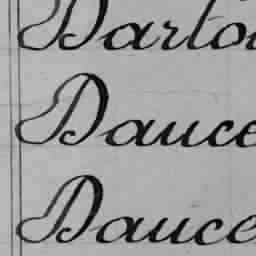 Darto
Dauce
Dauce